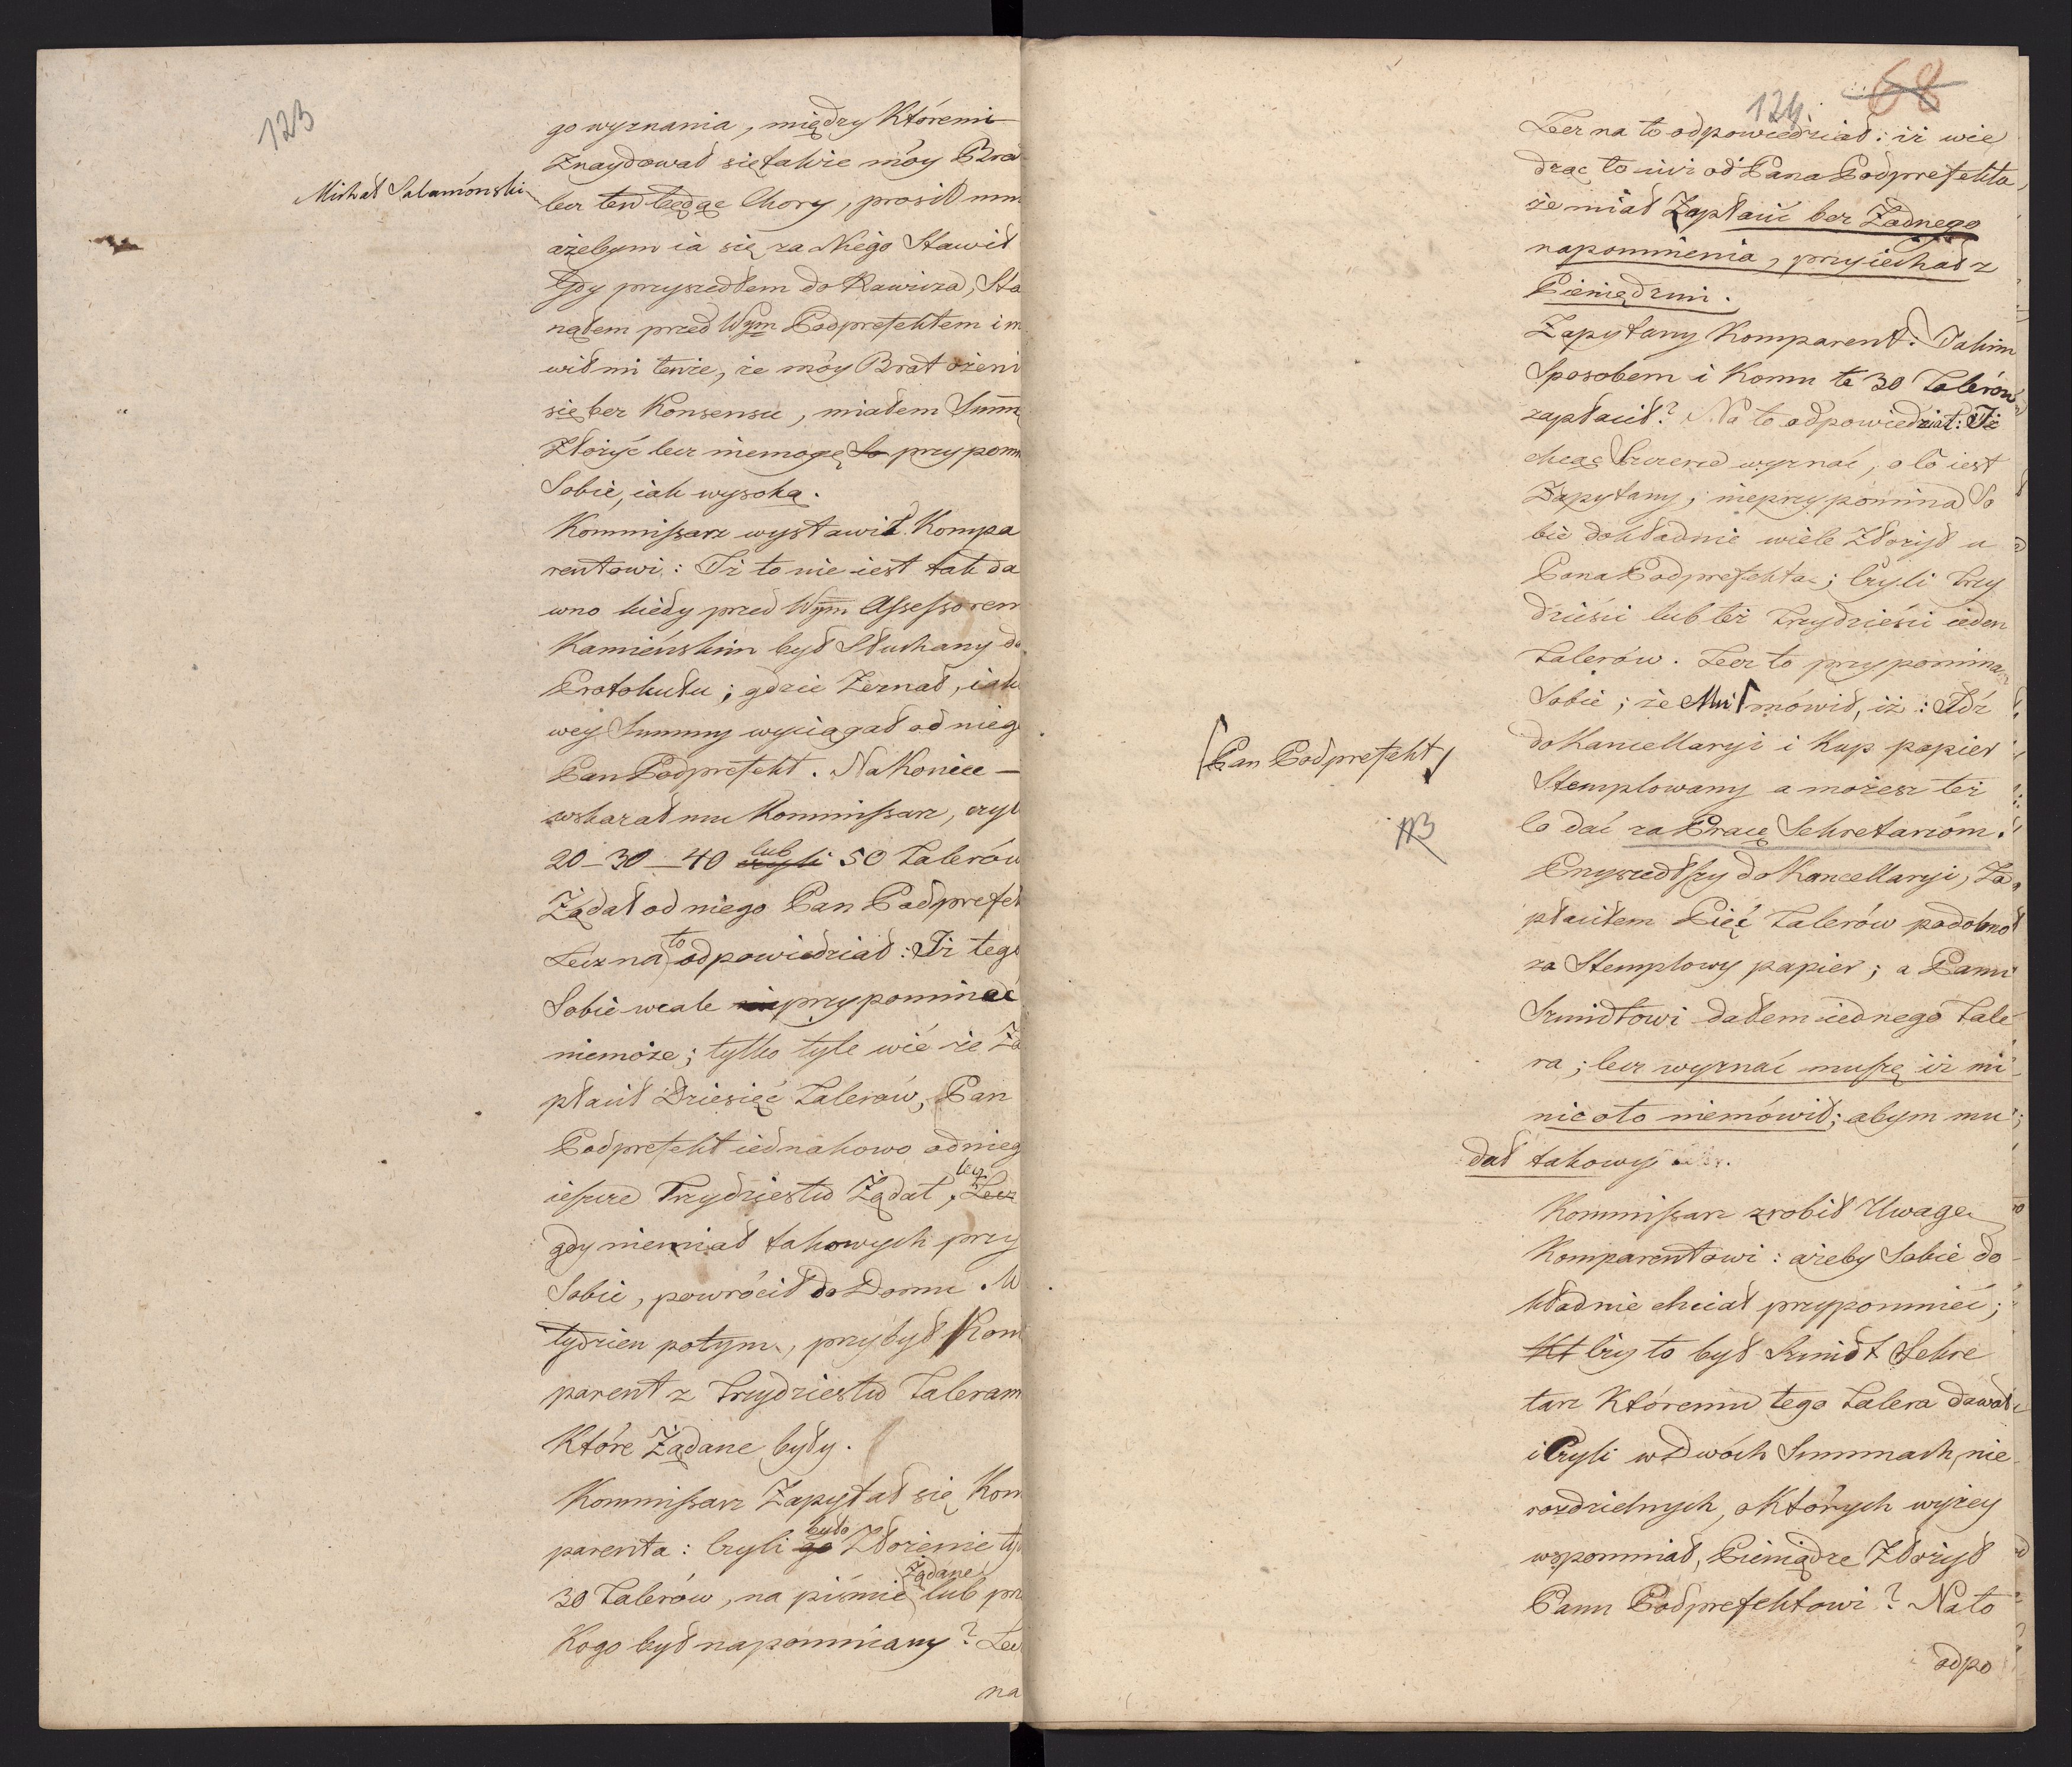 123
go wyznania, między Któremi
Znaydował się także móy Brat
Michał Salamónski
lecz ten będąc Chory, prosił mni
ażebym ia się za Niego Stawił
Gdy przyszedłem do Rawicza, Sta
nąłem przed Wym Podprefektem i m
wił mi tenże, że móy Brat ożeni
się bez Konsensu, miałem Summ
Złożyć lecz niemogę So przypom
Sobie, iak wysoką.
Kommissarz wystawił Kompa
rentowi: Iż to nie iest tak da
wno kiedy przed Wym Assessorem
Kamieńskim był Słuchany do
Protokułu; gdzie Zeznał, iak
wey Summy wyciągał od nieg
Pan Podprefekt. Na Koniec —
wskazał mu Kommissarz, czyl
20 – 30 – 40 czyli lub 50 Talerów
Żądał od niego Pan Podprefek
Lecz na to odpowiedział: Iż tego
Sobie wcale przypominać
niemoże; tylko tyle wié że Za
płacił Dziesięć Talerów, Pan
Podprefekt iednakowo od nieg
ieszcze Trzydziestu Żądał, Lecz lecz
gdy niemiał takowych przy
Sobie, powrócił do Domu. W
tydzien potym, przybył Kom
parent z trzydziestu Taleram
Które Żądane były.
Kommissarz Zapytał się Kom
parenta: Czyli go było Złożenie ty
30 Talerów, na piśmie Żądané lub prz
Kogo był napomniany? Lec
na
124 68
Lecz na to odpowiedział: iż wie
dząc to iuż od Pana Podprefekta,
że miał Zapłacić bez Żadnego
napomnienia, przyiechał z
Pieniędzmi.
Zapytany Komparent: Jakim
Sposobem i Komu te 30 Talerów
zapłacił? Na to odpowiedział: Iż
chcąc Szczerze wyznać, o co iest
Zapytany, nieprzypomina So
bie dokładnie wiele Złożył u
Pana Podprefekta; Czyli Trzy
dzieści lub też Trzydzieści ieden
Talerów. Lecz to przypomina
Sobie; że Mu mówił, iż: Idz
Pan Podprefekt
do Kancellaryi i Kup papier
Stemplowany a możesz też
113
co dać za Pracę Sekretarzóm.
Przyszedłszy do Kancellaryi, Za
płaciłem Pięć Talerów podobno
za Stemplowy papier; a Panu
Szmidtowi dałem iednego Tale
ra; lecz wyznać muszę iż mi
nic oto niemówił; abym mu
dał takowy
Kommissarz zrobił Uwagę
Komparentowi: ażeby Sobie do
kładnie chciał przypomnieć;
Kt Czy to był Szmidt Sekre
tarz Któremu tego Talera dawał
i Czyli w Dwóch Summach, nie
rozdzielnych, o Których wyżey
wspomniał, Pieniądze Złożył
Panu Podprefektowi? Na to
odpo